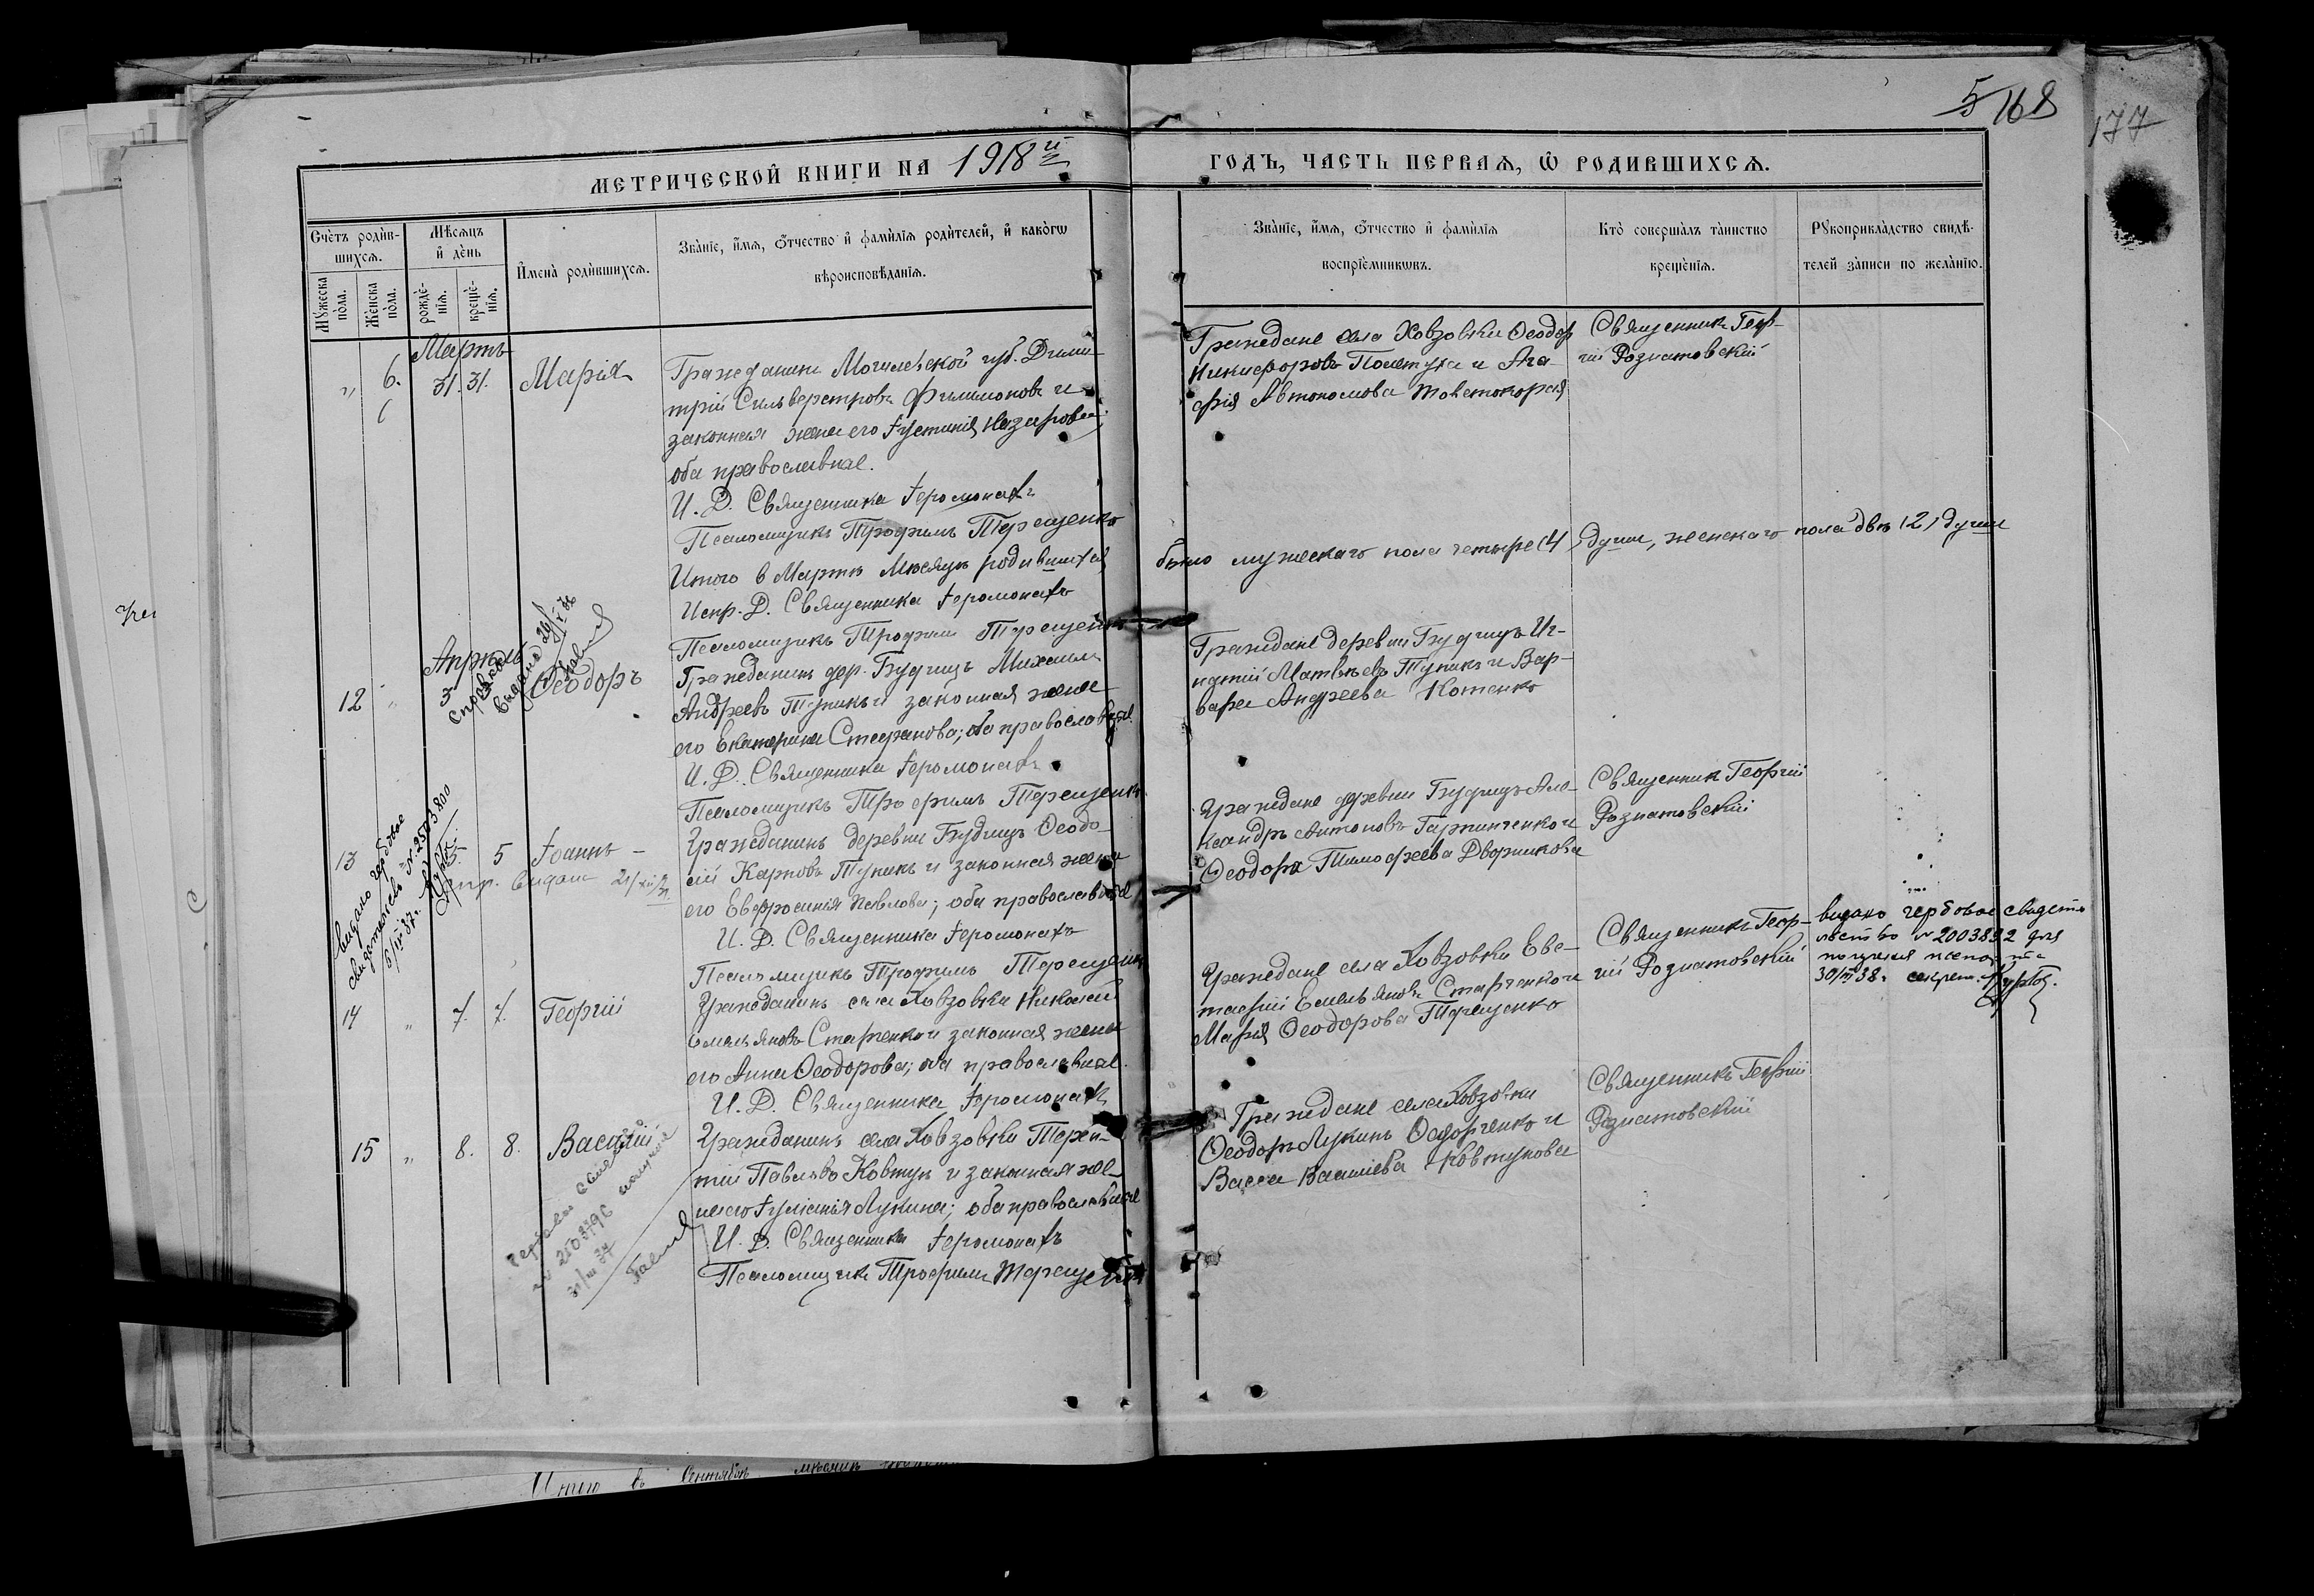 5 168
177
МЕТРИЧЕСКОЙ КНИГИ НА 1918й
ГОДЪ, ЧАСТЬ ПЕРВАЯ, Ѿ РОДИВШИХСѦ.
Счетъ родив-
шихсѧ.
Мѣсѧцъ
и день
Имена родившихсѧ.
Званїе, имѧ, ѻтчество и фамилїѧ родителей, и какогѡ
вѣроисповѣданїѧ.
Мꙋжеска
пола.
Женска
пола.
рожде-
нїѧ.
креще-
нїѧ.
Званїе, имѧ, ѻтчество и фамилїѧ
воспрїемникѡвъ.
Кто совершалъ таинство
крещенїѧ.
Рꙋкоприкладство свидѣ-
телей записи по желанїю.
Мартъ
" 6. 31. 31. Марія
Гражданинъ Могилевской губ. Дими-
трій Сильверстровъ Филимоновъ и
законная жена его Іустинія Назарова;
оба православные.
И. Д. Священника Іеромонахъ
Псаломщикъ Трофимъ Терещенко
Граждане села Ховзовки Ѳеодор
Никифоровъ и Ага-
фія Автономова
Священникъ Геор-
гій Рознатовскій
Итого в Мартѣ Мѣсяцѣ родившихся
было мужескаго пола четыре (4) души, женскаго пола двѣ (2) души
Испр. Д. Священника Іеромонахъ
Псаломщикъ Трофимъ Терещенко
Апрѣль
12 " 3 Ѳеодоръ
Справка
выдана 26/
Гражданинъ дер. Будищъ Михаилъ
Андреевъ Тупикъ и законная жена
его Екатерина Стефанова; оба православные.
И. Д. Священника Іеромонахъ
Псаломщикъ Трофимъ Терещенко
Граждане деревни Будищъ Иг-
натій Матвѣевъ Тупикъ и Вар-
вара Андреева Котенко
13 5 Іоаннъ
Выдано гербовое
свидетельсв № 2503800
5/IV 37 г.
Спр. выдана 21/XII
Гражданинъ деревни Будищъ Ѳеодо-
сій Карповъ Тупикъ и законная жена
его Евфросинія Павлова; оба православные
И. Д. Священника Іеромонахъ
Псаломщикъ Трофимъ Терещенко
Граждане деревни Будищъ Але-
ксандръ Антоновъ и
Ѳеодора Тимофеева Дворникова
Священникъ Георгій
Рознатовскій
14 " 7. 7. Георгій
Гражданинъ села Ховзовки Николай
Емельяновъ Старченко и законная жена
его Анна Ѳеодорова; оба православные.
И. Д. Священника Іеромонахъ
Граждане села Ховзовки Евс-
тафій Емельяновъ Старченко и
Марія Ѳеодорова Терещенко
Священникъ Геор-
гій Рознатовскій
выдано гербовое свидете
льство № 2003892 для
получения
30/III 38 г. секрет.
15 " 8. 8. Василій
№ 2503796
31/III 37
Гражданинъ села Ховзовки Терен-
тій Павловъ Ковтунъ и законная же-
на его Іуліанія Лукина; оба православные
И. Д. Священника Іеромонахъ
Псаломщикъ Трофимъ Терещенко
Граждане села Ховзовки
Ѳеодоръ Лукинъ Ѳедорченко и
Васса Василіева Ковтунова
Священникъ Георгій
Рознатовскій
Итого въ Сентябрѣ мѣсяцѣ